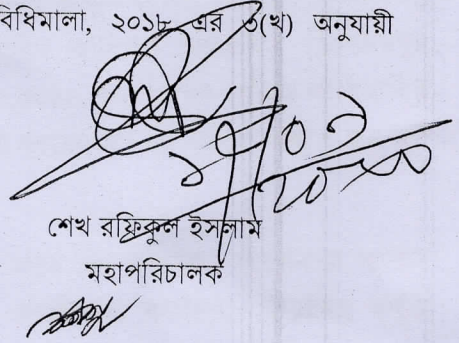 বিধিমালা, ২০১৮ এর ৩(খ) অনুযায়ী
শেখ রফিকুল ইসলাম
মহাপরিচালক